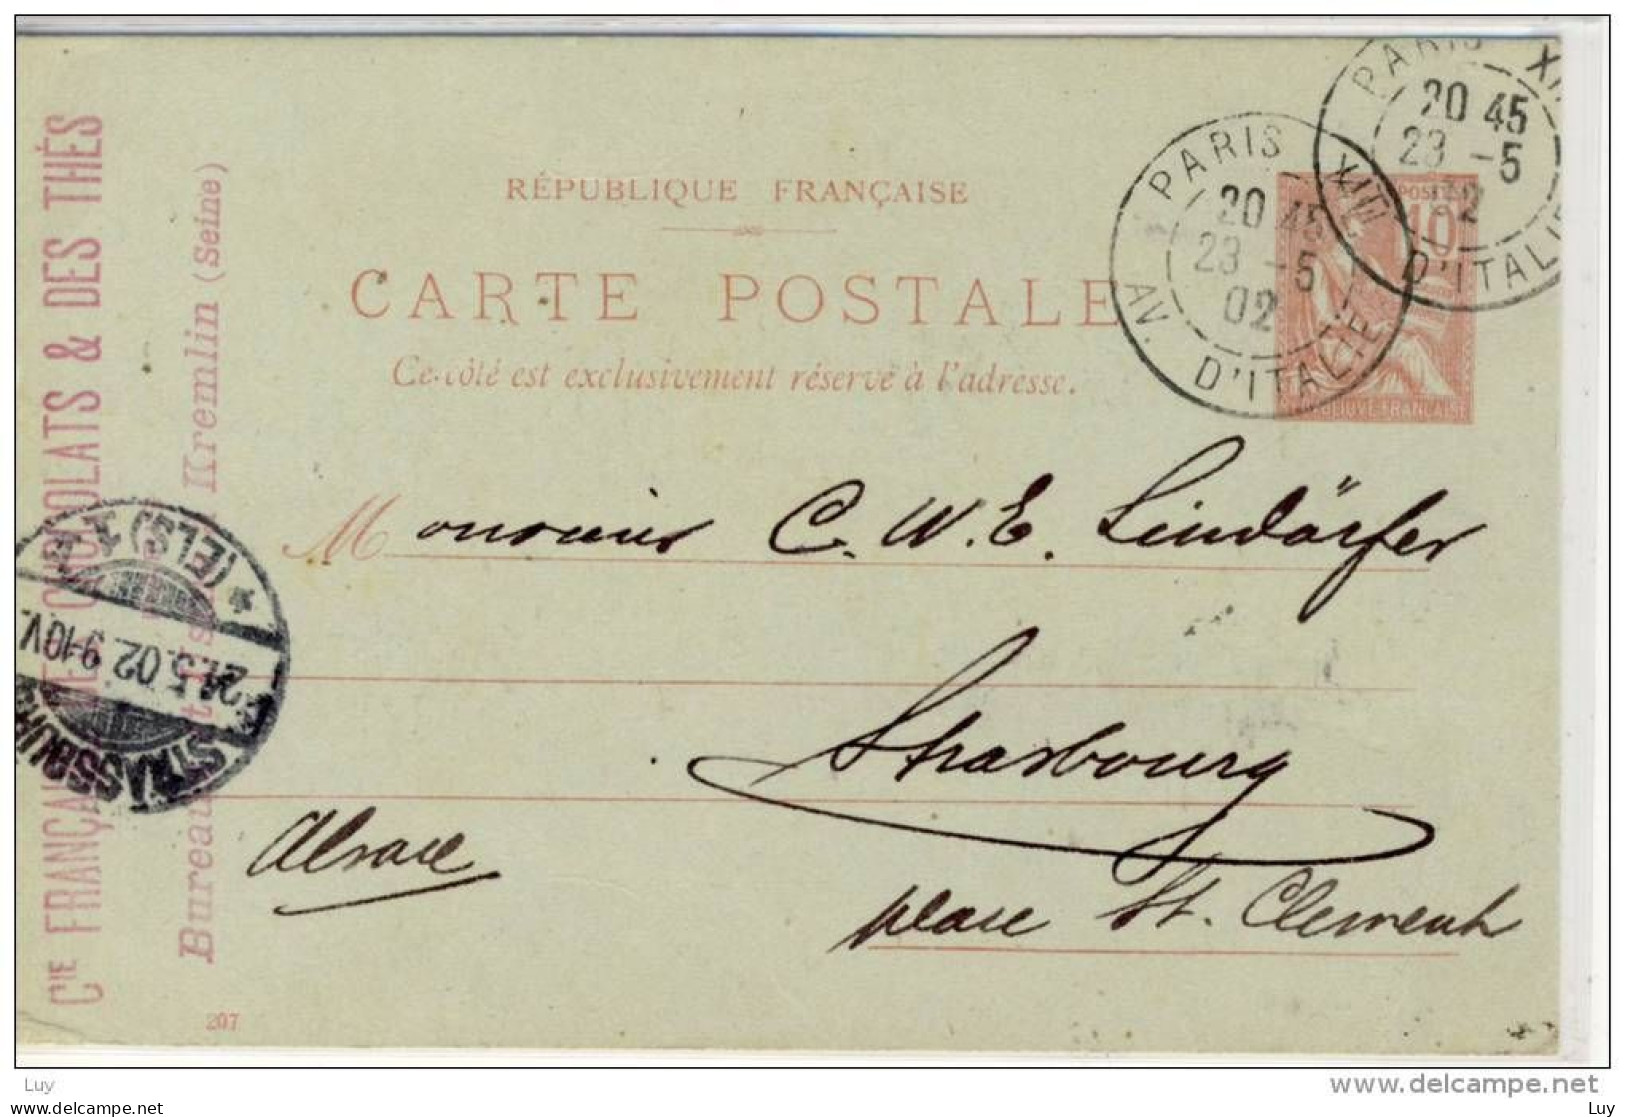 RÉPUBLIQUE FRANÇAISE
CARTE POSTALE
Ce côté est exclusivement réservé à l'adresse.
PARIS XIII
20 45
23 -5
02
AV. D'ITALIE
PARIS XIII
20 45
23 -5
02
D'ITALIE
POSTES
10
REPUBLIQUE FRANÇAISE
Monsieur C. W. E. Lindörfer
Strasbourg
place St. Clement
Alsace
Cie FRANÇAISE DES CHOCOLATS & DES THÉS
Bureau Kremlin (Seine)
STRASSBURG
24.5.02. 9-10V.
* (ELS) 1
207
www.delcampe.net
Luy
www.delcampe.com
Luy